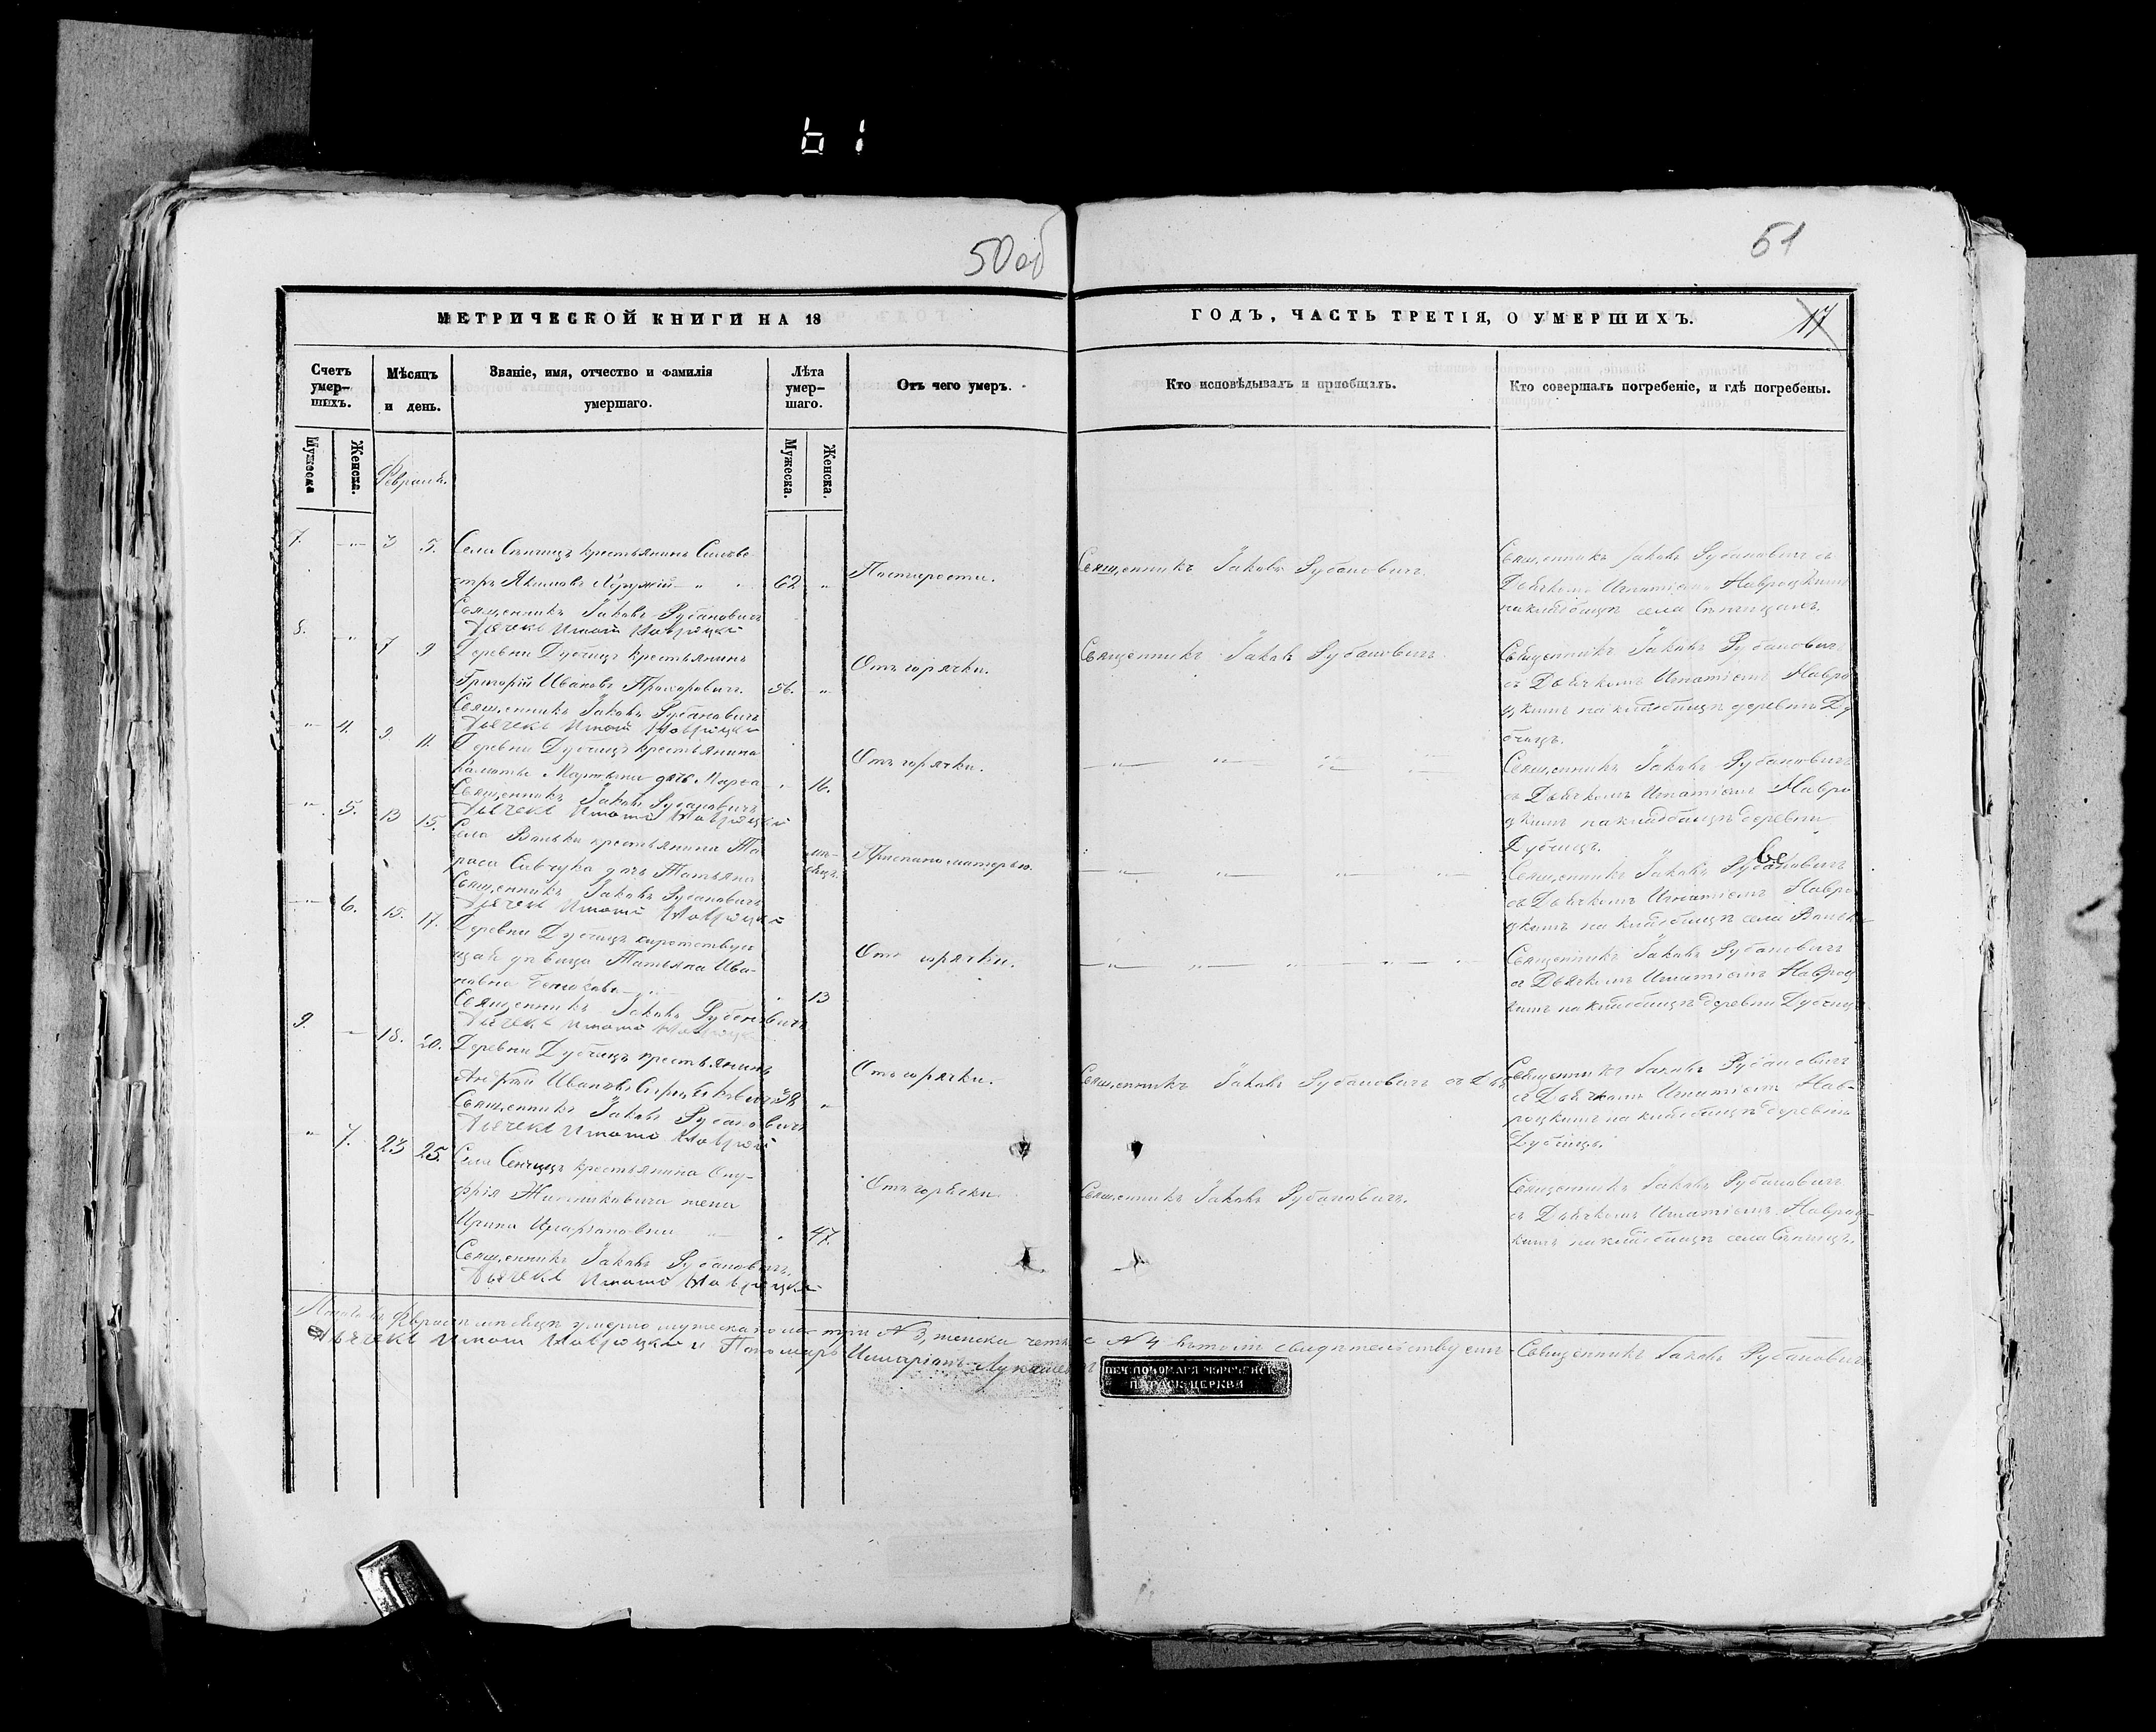 61
50об
51
МЕТРИЧЕСКОЙ КНИГИ НА 18
ГОДЪ, ЧАСТЬ ТРЕТІЯ, О УМЕРШИХЪ.
17
Счетъ умер-шихъ.
Мѣсяцъ и день.
Званіе, имя, отчество и фамилія умершаго.
Лѣта умер-шаго.
Отъ чего умеръ.
Кто исповѣдывалъ и пріобщалъ.
Кто совершалъ погребеніе, и гдѣ погребены.
Мужеска
Женска.
Мужеска.
Женска.
Февраль.
7. 3 5. Села Сѣнчицъ крестьянинъ Сильве
стръ Якимовъ 62
Священникъ Іаковъ Рубановичъ
Дьячекъ Игнатій Навроцкій
Отъ старости.
Священникъ Іаковъ Рубановичъ
Священникъ Іаковъ Рубановичъ съ
Дьячкомъ Игнатіемъ Навроцкимъ
на кладбищѣ села
8. 7 9 Деревни Дубчицъ крестьянинъ
Григорій Ивановъ Прохоровичъ. 56.
Священникъ Іаковъ Рубановичъ
Дьячекъ Игнатій Навроцкій
Отъ горячки.
Священникъ Іаковъ Рубановичъ
Священникъ Іаковъ Рубановичъ
съ Дьячкомъ Игнатіемъ Навро
цкимъ на кладбищѣ деревни Ду
бчицъ.
4. 9. 11. Деревни Дубчицъ крестьянина
дочь 16.
Священникъ Іаковъ Рубановичъ
Дьячекъ Игнатій Навроцкій
Отъ горячки.
Священникъ Іаковъ Рубановичъ
съ Дьячкомъ Игнатіемъ Навро
цкимъ на кладбищѣ деревни
Дубчицъ.
5. 13 15. Села крестьянина Та
раса Савчука дочь Татьяна
Священникъ Іаковъ Рубановичъ
Дьячекъ Игнатій Навроцкій
Приспано матерью.
Священникъ Іаковъ Рубановичъ
съ Дьячкомъ Игнатіемъ Навро
цкимъ на кладбищѣ села
6. 15. 17. Деревни Дубчицъ сиротствую
щая дѣвица Татьяна Ива-
новна 13
Священникъ Іаковъ Рубановичъ
Дьячекъ Игнатій Навроцкій
Отъ горячки.
Священникъ Іаковъ Рубановичъ
съ Дьячкомъ Игнатіемъ Навроц
кимъ на кладбищѣ деревни Дубчицъ
9. 18. 20. Деревни Дубчицъ крестьянинъ
Андрей Ивановъ 38
Священникъ Іаковъ Рубановичъ
Дьячекъ Игнатій Навроцкій
Отъ горячки.
Священникъ Іаковъ Рубановичъ
Священникъ Іаковъ Рубановичъ
съ Дьячкомъ Игнатіемъ Нав-
роцкимъ на кладбищѣ деревни
Дубчицъ.
7. 23 25. Села Сенчицъ крестьянина Ону-
фрія жена
Ирина 47.
Священникъ Іаковъ Рубановичъ.
Дьячекъ Игнатій Навроцкій
Отъ горячки.
Священникъ Іаковъ Рубановичъ.
Священникъ Іаковъ Рубановичъ
съ Дьячкомъ Игнатіемъ Навроц-
кимъ на кладбищѣ села Сѣнчицъ.
Февралѣ мѣсяцѣ умерло мужеска пола три № 3, женска четыре № 4 въ томъ свидѣтельствуемъ Священникъ Іаковъ Рубановичъ
Дьячекъ Игнатій Навроцкій и Пономарь
ЦЕРКВИ